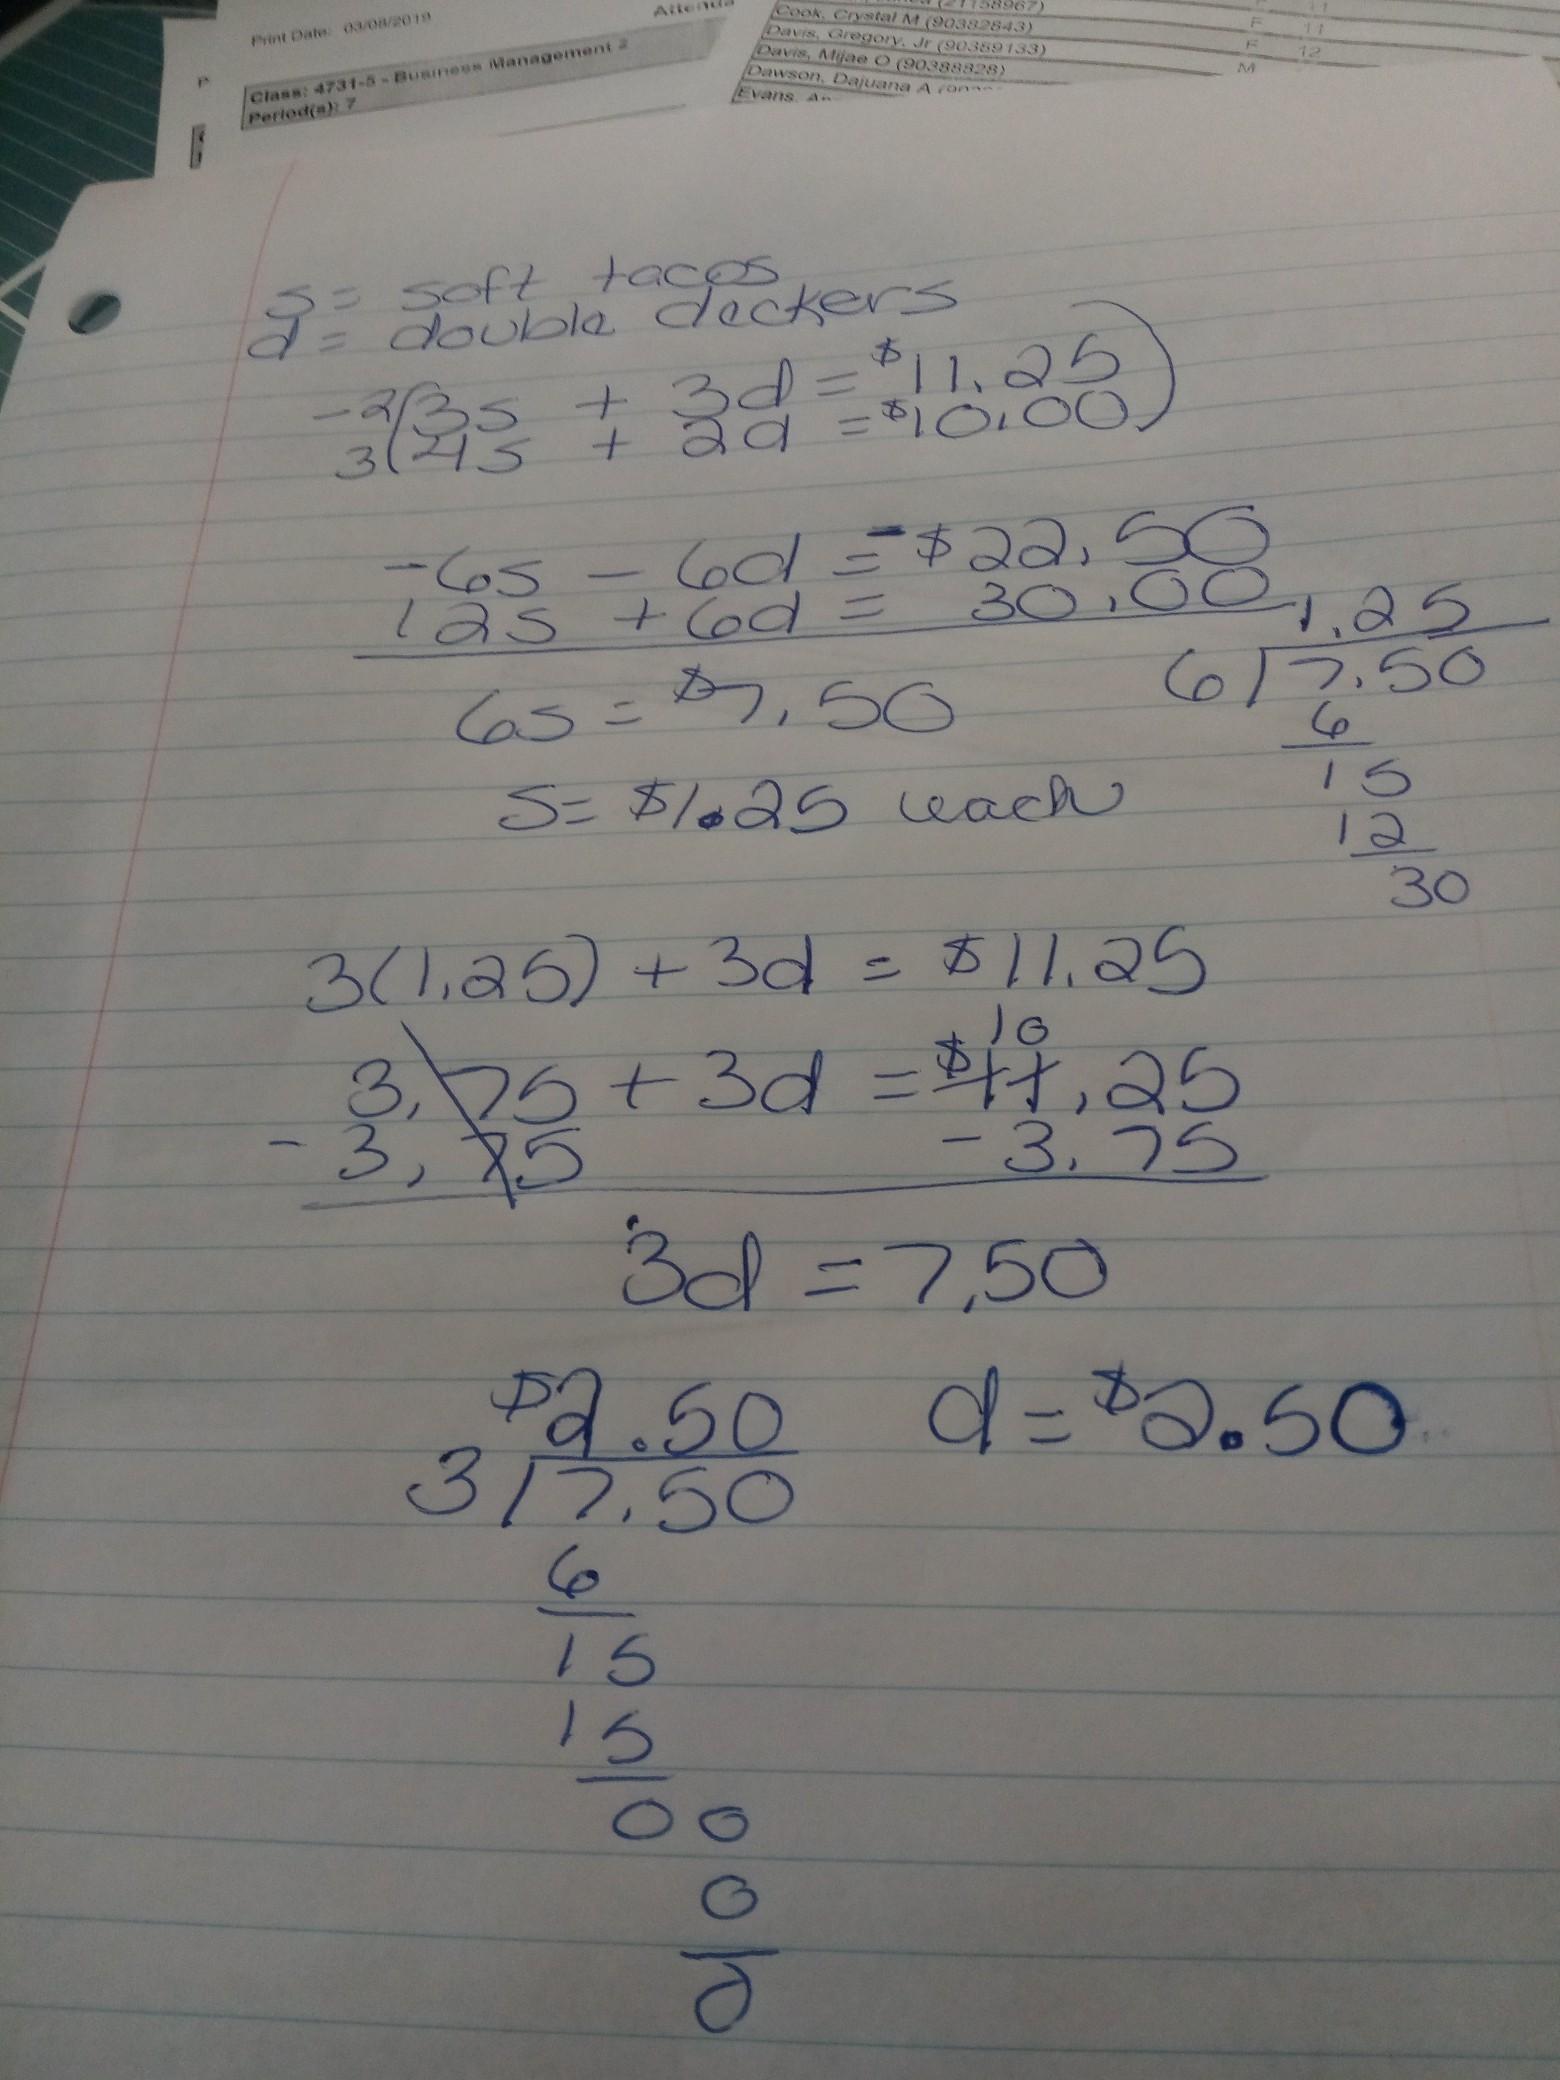 Print Date: 03/08/2019
Class: 4731-5 - Business Management 2
Period(s): 7
(21158967)
Cook, Crystal M (90382843) F 11
Davis, Gregory, Jr (90359133) F 11
Davis, Mijae O (90388828) M 12
Dawson, Dajuana A
Evans,
s = soft tacos
d = double deckers
-2(3s + 3d = $11.25)
3(4s + 2d = $10.00)
-6s - 6d = -$22.50
12s + 6d = 30.00
6s = $7.50
s = $1.25 each
1.25
6 7.50
6
15
12
30
3(1.25) + 3d = $11.25
10
3.75 + 3d = $11.25
- 3.75 - 3.75
3d = 7.50
$2.50 d = $2.50
3 7.50
6
15
15
00
0
0